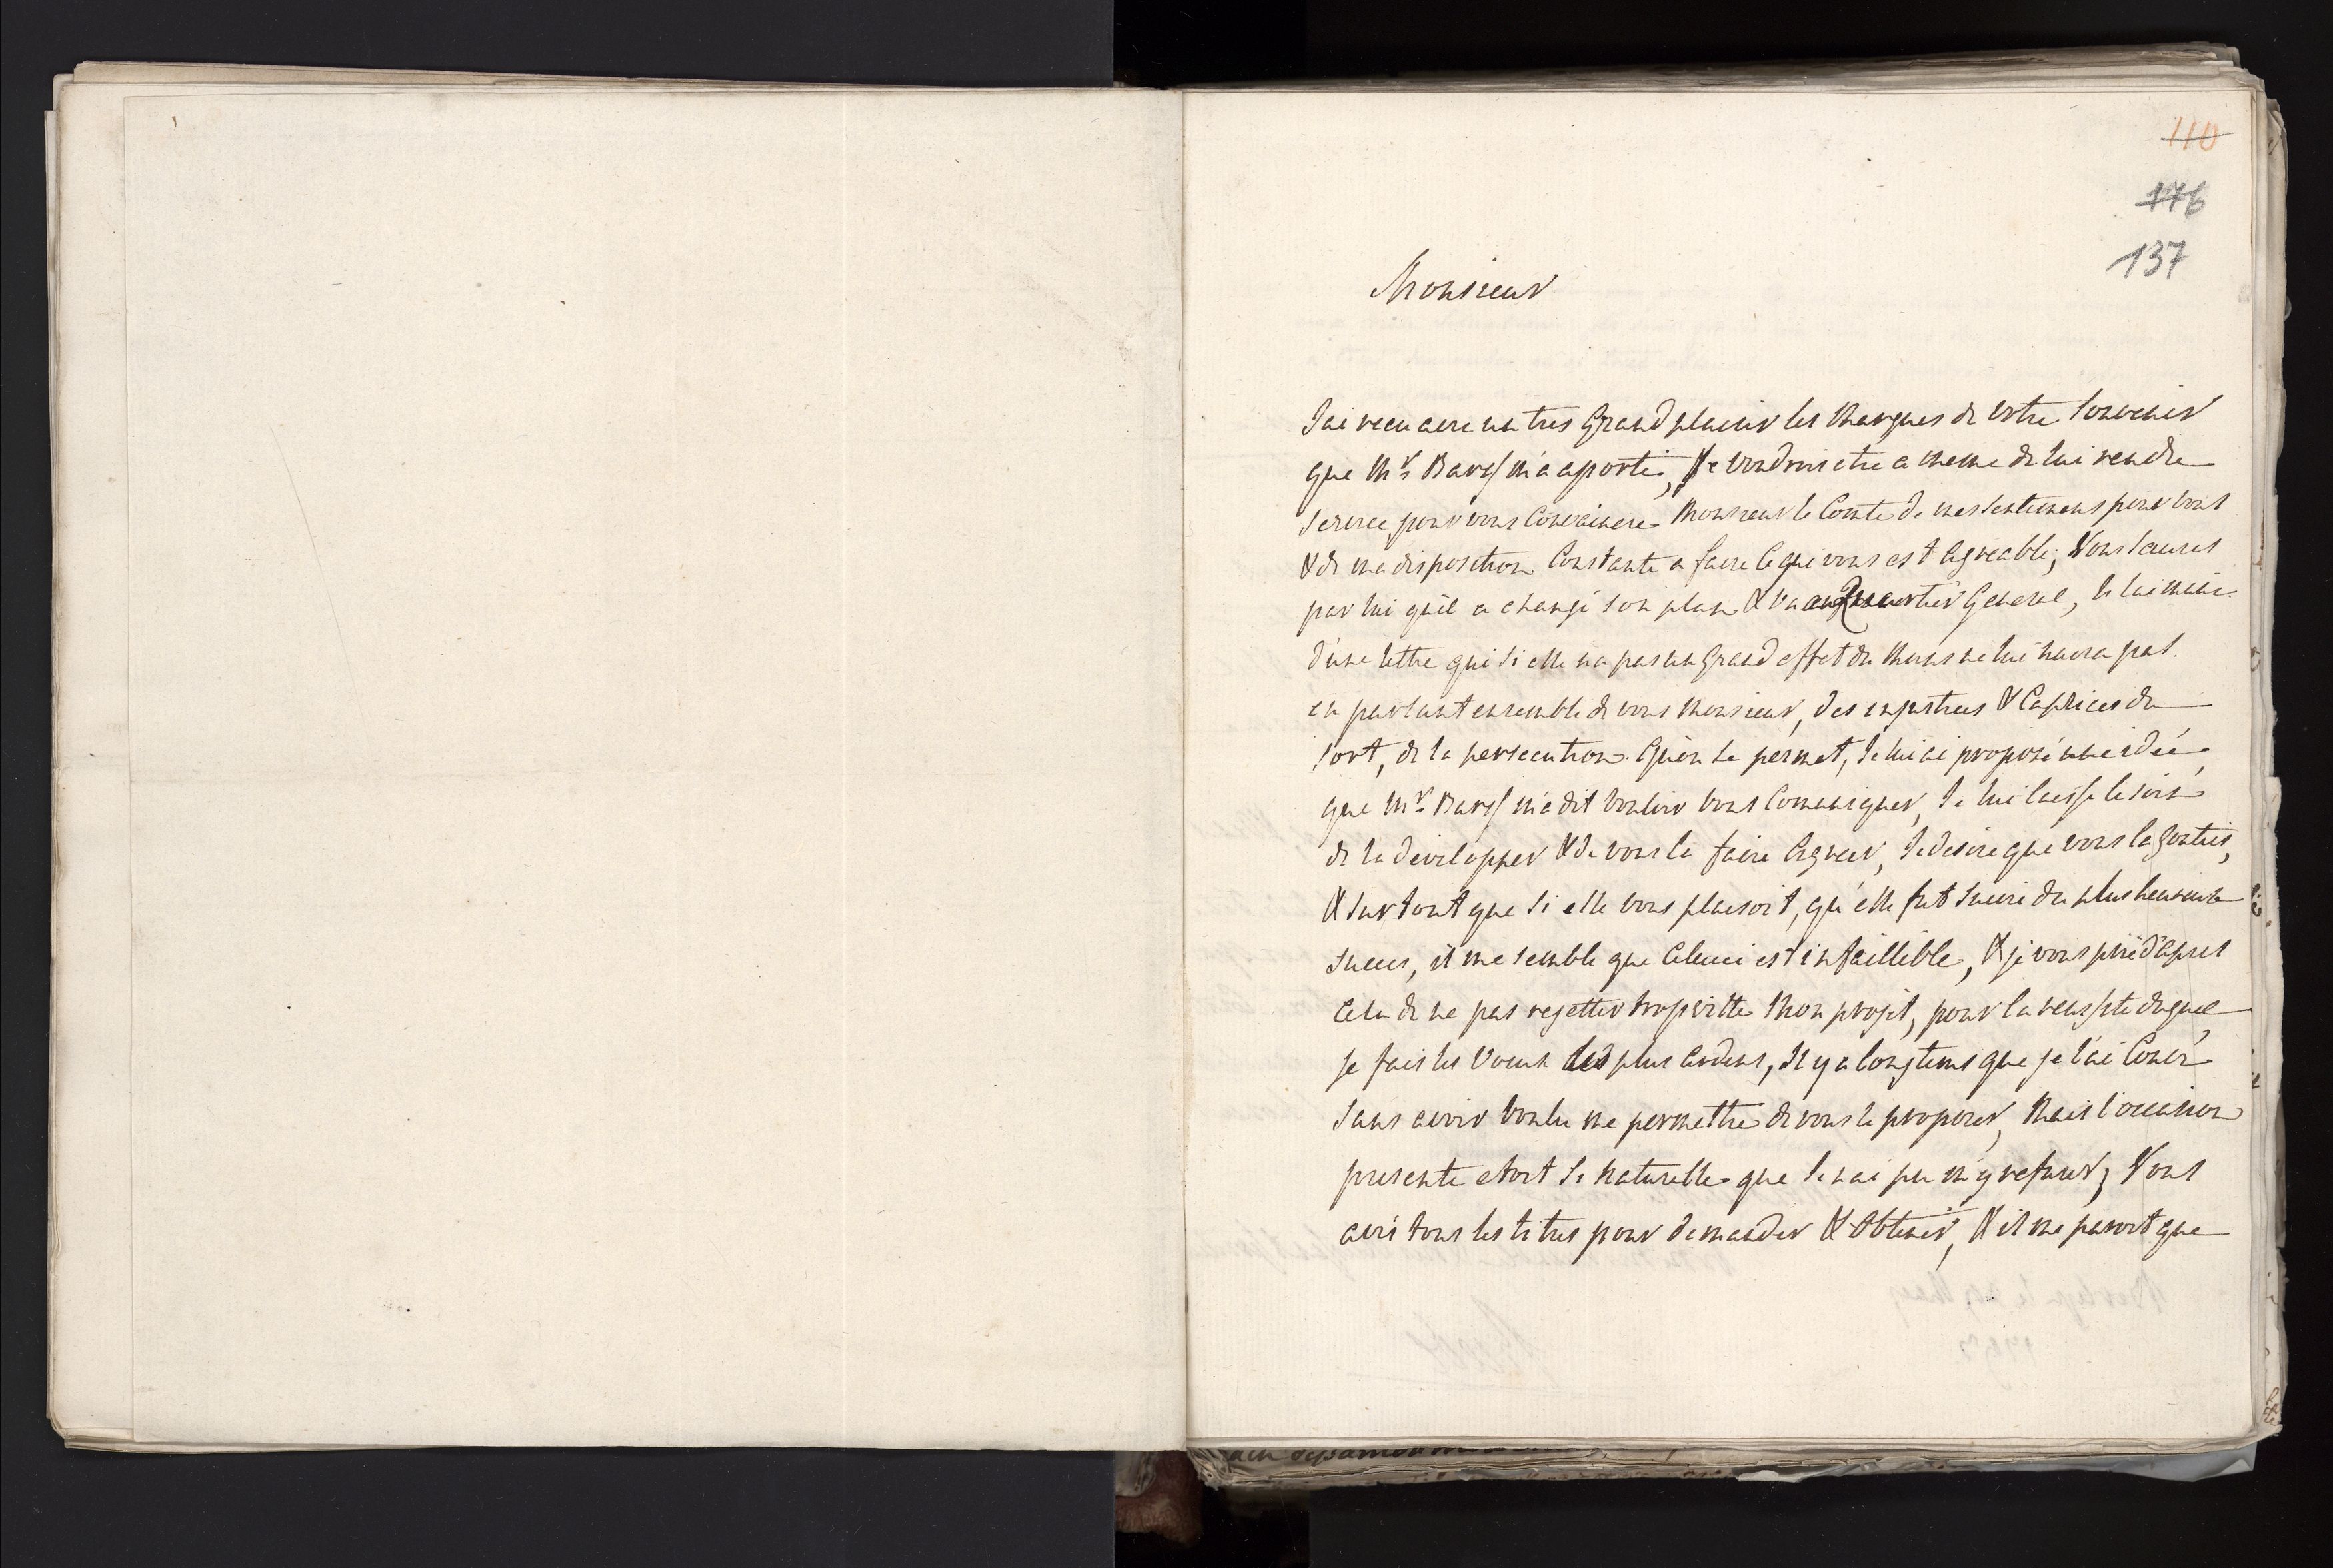 110
176
137
Monsieur
J'ai recu avec un tres Grand plaisir les Marques de votre Souvenir
que Mr. Bars m'a aporté, Je voudrois etre a meme de lui rendre
service, pour vous Convaincre Monsieur le Comte de mes sentimens pour vous
& de ma disposition Constante a faire ce qui vous est agreable; Vous saurés
par lui qu'il a changé son plan & va au Quartier General, Je l'ai muni
d'une lettre qui si elle n'a pas un Grand effet du Moins ne lui nuira pas.
en parlant ensemble de vous Monsieur, des injustices & Caprices du
sort, de la persecution qu'on se permet, Je lui ai proposé une idée,
que Mr. Bars m'a dit vouloir vous Comuniquer, Je lui laisse le soin
de la développer & de vous la faire Agreer, Je desire que vous la goutiés,
& sur tout que si elle vous plaisoit, qu'elle fut suivie du plus heureux
succes, il me semble que Celuici est infaillible, & je vous prie d'apres
Cela de ne pas rejetter trop vitte Mon projet, pour la reussite duquel
je fais les voeux les plus ardens, Il y a longtems que je l'ai Concu
sans avoir voulu me permettre de vous le proposer, Mais l'occasion
presente etoit si Naturelle que Je n'ai pu m'y refuser; Vous
avés tous les titres pour demander & obtenir, & il me paroit que